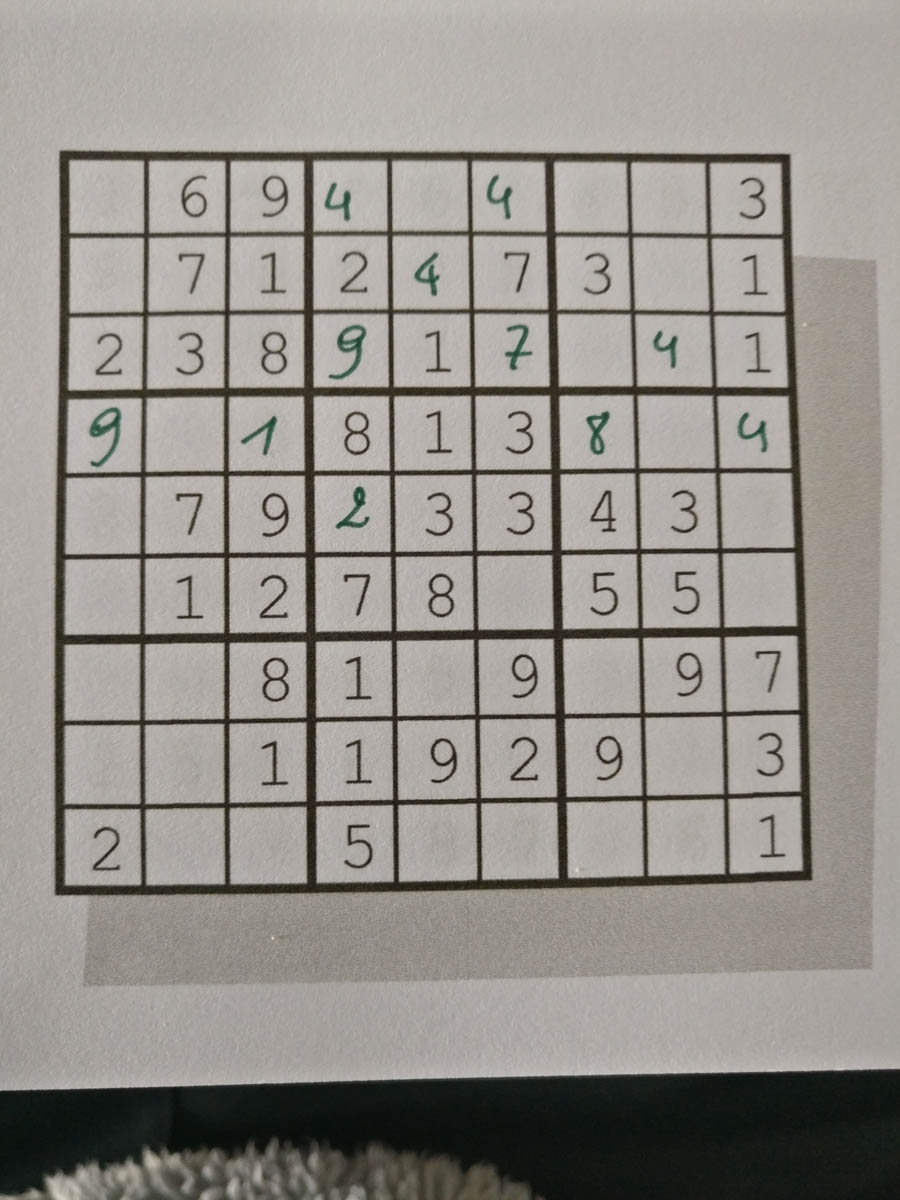 6 9 4 4 3
7 1 2 4 7 3 1
2 3 8 9 1 7 4 1
9 1 8 1 3 8 4
7 9 2 3 3 4 3
1 2 7 8 5 5
8 1 9 9 7
1 1 9 2 9 3
2 5 1